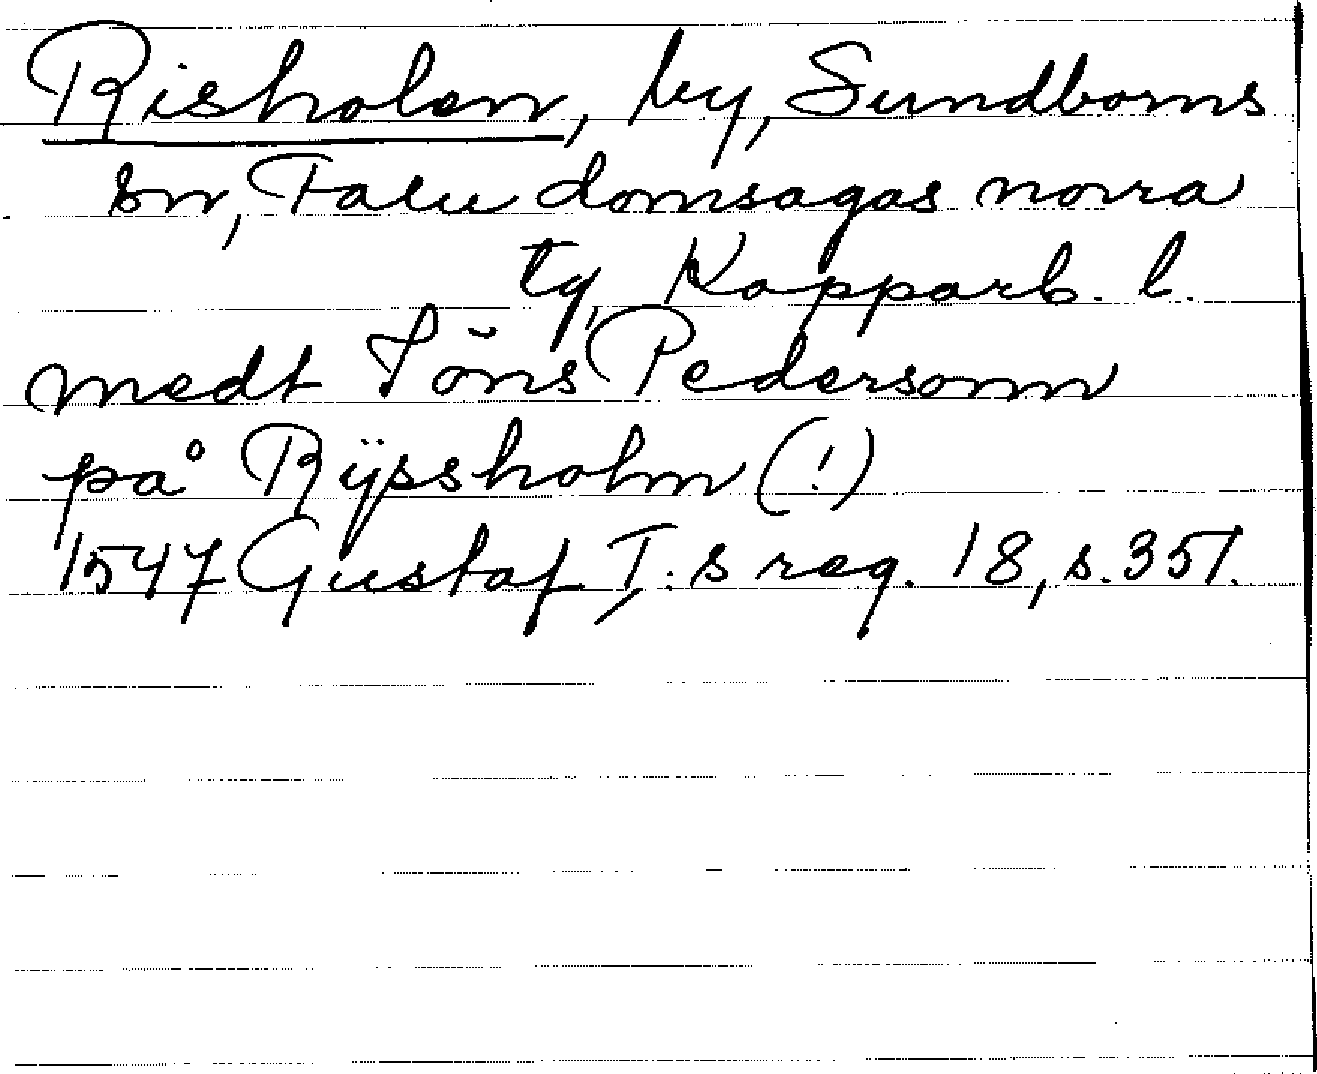 Risholen, by, Sundborns
sn, Falu domsagas norra
tg, Kopparb. l.
medt Jöns Pedersonn
på Rÿssholm (!)
1547 Gustaf I:s reg. 18, s. 351.